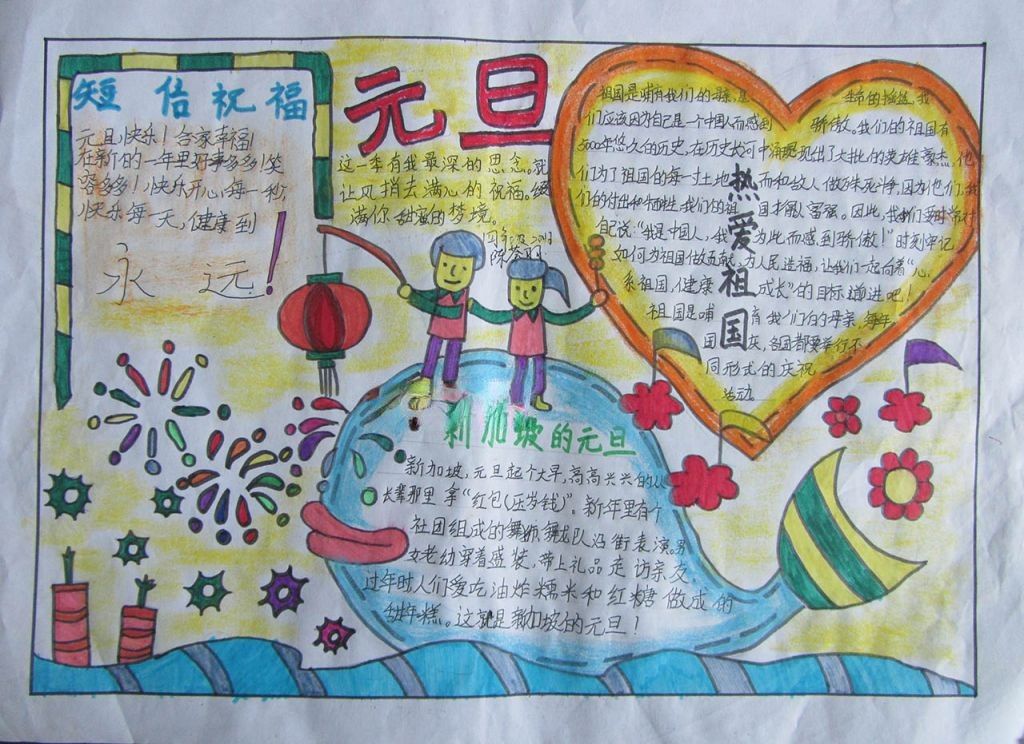 短信祝福
元旦快乐！合家幸福！
在新的一年里好事多多！笑
容多多！快乐开心每一秒，
快乐每一天，健康到
永远！
元旦
这一季有我最深的思念。就
让风捎去满心的祝福。缀
满你甜蜜的梦境。
热爱祖国
祖国是哺育我们的母亲，是生命的摇篮，我
们应该因为自己是一个中国人而感到骄傲。我们的祖国有
5000年悠久的历史，在历史长河中涌现出了大批的英雄豪杰，他
们为了祖国的每一寸土地而和敌人做殊死斗争，因为他们，我
们的付出和牺牲，我们的祖国才能富强。因此，我们要时常
自配说：“我是中国人，我为此而感到骄傲！”时刻牢记
如何为祖国做贡献，为人民造福，让我们一起向着“心
系祖国，健康成长”的目标迈进吧！
祖国是哺育我们的母亲，每年
国庆，各国都要举行不
同形式的庆祝
活动。
新加坡的元旦
新加坡，元旦起个大早，高高兴兴的从
长辈那里拿“红包（压岁钱）”。新年里有个
社团组成的舞狮、舞龙队沿街表演。男
女老幼穿着盛装，带上礼品走访亲友
过年时人们爱吃油炸糯米和红糖做成的
甜年糕。这就是新加坡的元旦！